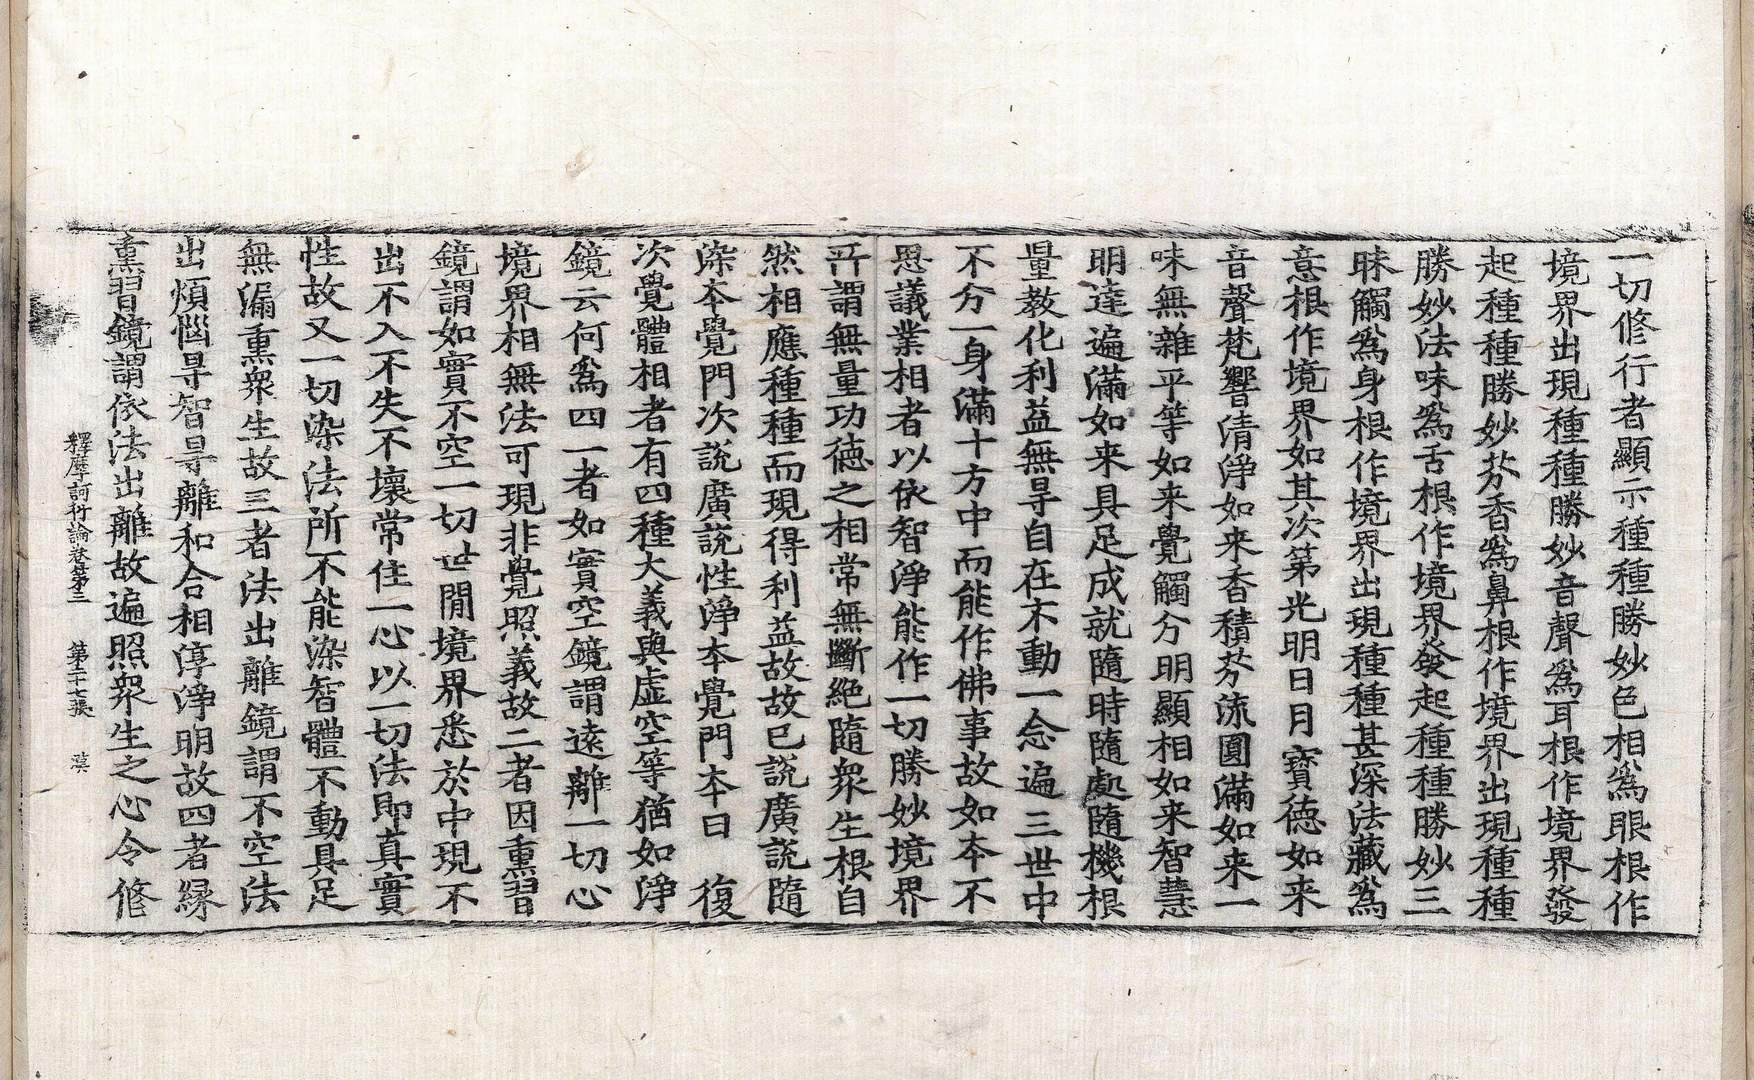 一切修行者顯示種種勝妙色相爲眼根作
境界出現種種勝妙音聲爲耳根作境界發
起種種勝妙芬香爲鼻根作境界出現種種
勝妙法味爲舌根作境界發起種種勝妙三
昧觸爲身根作境界出現種種甚深法藏爲
意根作境界如其次第光明日月寶德如来
音聲梵響清淨如来香積芬流圓滿如来一
味無雜平等如来覺觸分明顯相如来智慧
明達遍滿如来具足成就隨時隨處隨機根
量教化利益無㝵自在不動一念遍三世中
不分一身滿十方中而能作佛事故如本不
思議業相者以依智淨能作一切勝妙境界
所謂無量功徳之相常無斷絕隨衆生根自
然相應種種而現得利益故故已説廣説隨
染本覺門次説廣説性淨本覺門本曰　復
次覺體相者有四種大義與虛空等猶如淨
鏡云何爲四一者如實空鏡謂遠離一切心
境界相無法可現非覺照義故二者因熏習
鏡謂如實不空一切世間境界悉於中現不
出不入不失不壞常住一心以一切法即真實
性故又一切染法所不能染智體不動具足
無漏熏衆生故三者法出離鏡謂不空法
出煩惱㝵智㝵離和合相淳淨明故四者緣
熏習鏡謂依法出離故遍照衆生之心令修
釋摩訶衍論卷第三　第二十七張　漠